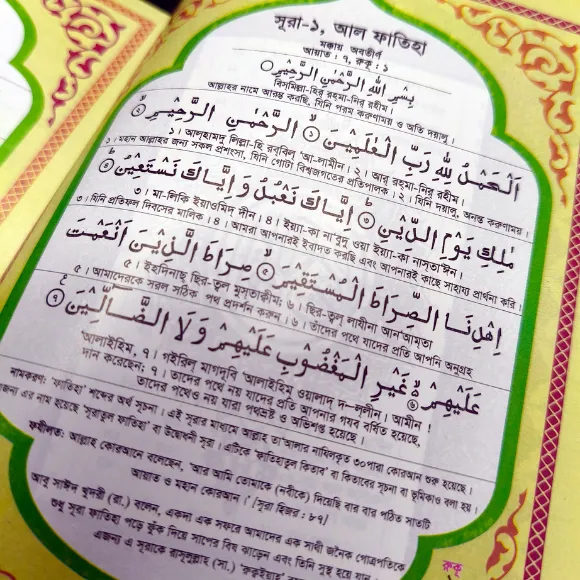 সূরা-১, আল ফাতিহা
মক্কায় অবতীর্ণ
আয়াত : ৭, রুকু : ১
بِسْمِ اللهِ الرَّحْمٰنِ الرَّحِيْمِ
বিসমিল্লা-হির্ রহমা-নির্ রহীম।
আল্লাহর নামে আরম্ভ করছি, যিনি পরম করুণাময় ও অতি দয়ালু।
اَلْحَمْدُ لِلّٰهِ رَبِّ الْعٰلَمِيْنَ ۙ﴿۱﴾ الرَّحْمٰنِ الرَّحِيْمِ ۙ﴿۲﴾
১। আল্হামদু লিল্লা-হি রব্বিল 'আ-লামীন। ২। আর্ রহ্মা-নির্ রহীম।
১। মহান আল্লাহর জন্য সকল প্রশংসা, যিনি গোটা বিশ্বজগতের প্রতিপালক। ২। যিনি দয়ালু, অনন্ত করুণাময়।
مٰلِكِ يَوْمِ الدِّيْنِ ؕ﴿۳﴾ اِيَّاكَ نَعْبُدُ وَ اِيَّاكَ نَسْتَعِيْنُ ؕ﴿۴﴾
৩। মা-লিকি ইয়াওমিদ্ দীন। ৪। ইয়্যা-কা না'বুদু ওয়া ইয়্যা-কা নাস্তা'ঈন।
৩। যিনি প্রতিফল দিবসের মালিক। ৪। আমরা আপনারই ইবাদত করছি এবং আপনারই কাছে সাহায্য প্রার্থনা করি।
اِهْدِنَا الصِّرَاطَ الْمُسْتَقِيْمَ ۙ﴿۵﴾ صِرَاطَ الَّذِيْنَ اَنْعَمْتَ
৫। ইহদিনাছ্ ছির-ত্বল্ মুস্তাক্বীম্। ৬। ছির-ত্বল্ লাযীনা আন্'আম্তা
৫। আমাদেরকে সরল সঠিক পথ প্রদর্শন করুন। ৬। তাদের পথে যাদের প্রতি আপনি অনুগ্রহ
عَلَيْهِمْ ۙ﴿۶﴾ غَيْرِ الْمَغْضُوْبِ عَلَيْهِمْ وَلَا الضَّآلِّيْنَ ﴿۷﴾
'আলাইহিম্, ৭। গইরিল্ মাগদূবি 'আলাইহিম্ ওয়ালাদ্ দ—ল্লীন। আমীন!
দান করেছেন; ৭। তাদের পথে নয় যাদের প্রতি আপনার গযব বর্ষিত হয়েছে,
তাদের পথেও নয় যারা পথভ্রষ্ট ও অভিশপ্ত হয়েছে।
নামকরণ: 'ফাতিহা' শব্দের অর্থ সূচনা। এই সূরার মাধ্যমে আল্লাহ তা'আলার নাযিলকৃত ৩০পারা কোরআন শুরু হয়েছে।
এজন্য এর নাম হয়েছে 'সূরাতুল ফাতিহা' বা উদ্বোধনী সূরা। এটিকে 'ফাতিহাতুল কিতাব' বা কিতাবের সূচনা বা ভূমিকাও বলা হয়।
ফযীলত: আল্লাহ কোরআনে বলেছেন, 'আর আমি তোমাকে (নবীকে) দিয়েছি বার বার পঠিত সাতটি
আয়াত ও মহান কোরআন।' [সূরা হিজর : ৮৭]
আবু সাঈদ খুদরী (রা.) বলেন, একদা এক সফরে আমাদের এক সাথী জনৈক গোত্রপতিকে
শুধু সূরা ফাতিহা পড়ে ফুঁক দিয়ে সাপের বিষ ঝাড়েন এবং তিনি সুস্থ হয়ে যান
এজন্য এ সূরাকে রাসূলুল্লাহ (সা.)
রুকূ